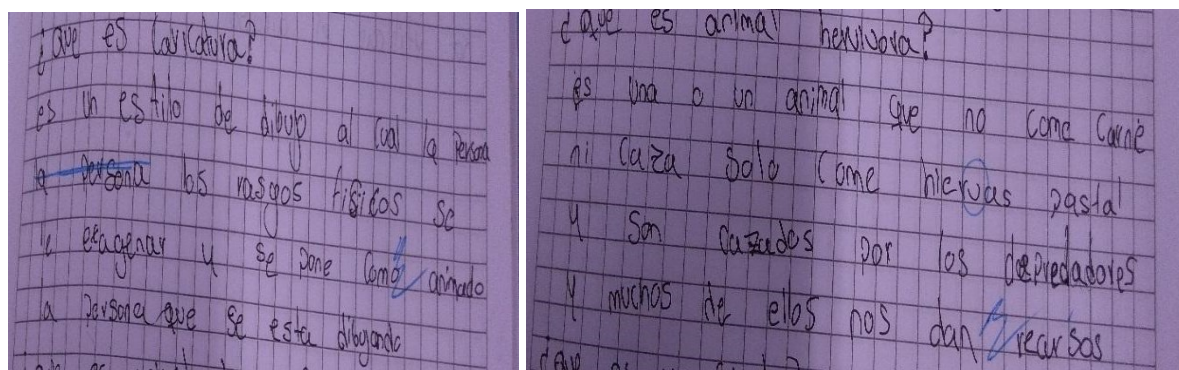 ¿que es caricatura?
es un estilo de dibujo al cual la persona
la persona los rasgos fisicos se
le exagenar y se pone como animado
a persona que se esta dibogando
¿que es animal hervivora?
es una o un animal que no come carne
ni caza solo come hiervas pastal
y son cazados por los depredadores
y muchos de ellos nos dan recursos